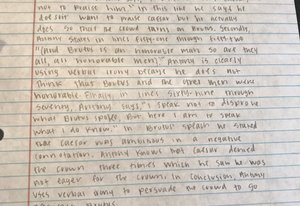 not to praise him". In this line he says he
doesn't want to praise caesar but he actually
does so that the crowd turns on Brutus. Secondly,
Antony states in lines fifty-nine through fifty-two
"(and Brutus is an honorable man so are they
all, all honorable men)." Antony is clearly
using verbal irony because he does not
think that Brutus and the other men were
honorable. Finally, in lines sixty-nine through
seventy, Antony says, "I speak not to disprove
what Brutus spoke, But here I am to speak
what I do know." In Brutus' speech he stated
that caesar was ambitious in a negative
connotation. Antony knows that caesar denied
the crown three times which he saw he was
not eager for the crown. In conclusion, Antony
uses verbal irony to persuade the crowd to go
Brutus.